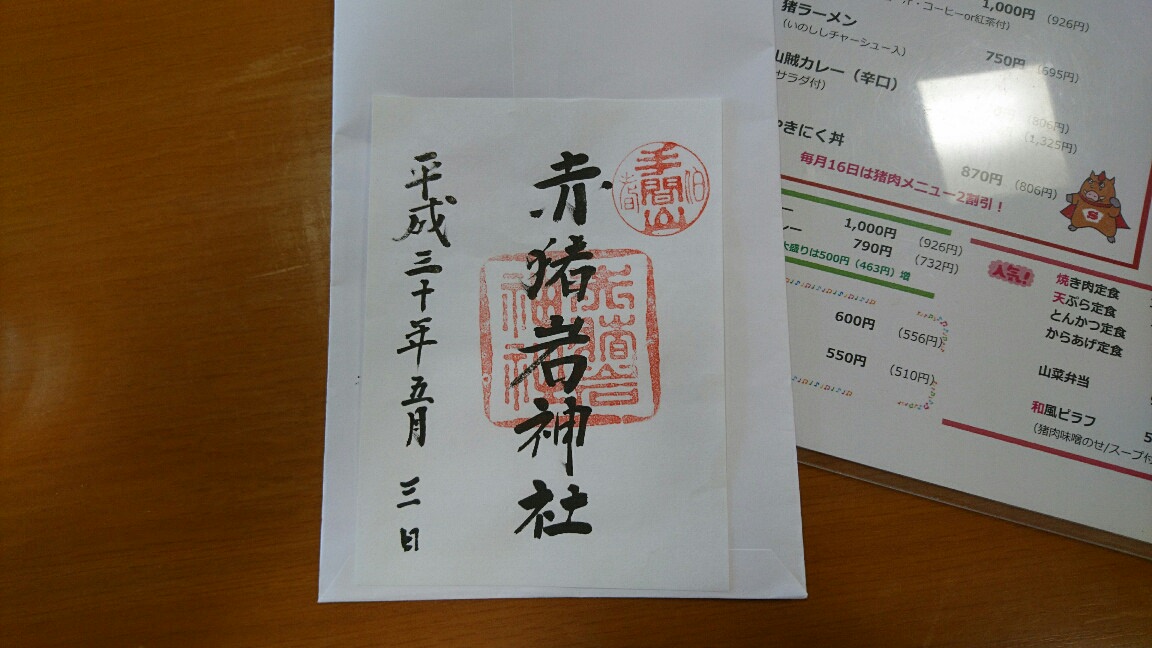 赤猪岩神社
平成三十年五月三日
手間山
伯耆
赤猪岩
神社
1,000円 (926円)
猪ラーメン
(いのししチャーシュー入)
750円 (695円)
山賊カレー（辛口）
サラダ付)
(806円)
(1,325円)
やきにく丼
870円 (806円)
毎月16日は猪肉メニュー2割引！
S
1,000円 (926円)
790円 (732円)
大盛りは500円（463円）増
600円 (556円)
550円 (510円)
人気！
焼き肉定食
天ぷら定食
とんかつ定食
からあげ定食
山菜弁当
和風ピラフ
(猪肉味噌のせ/スープ付